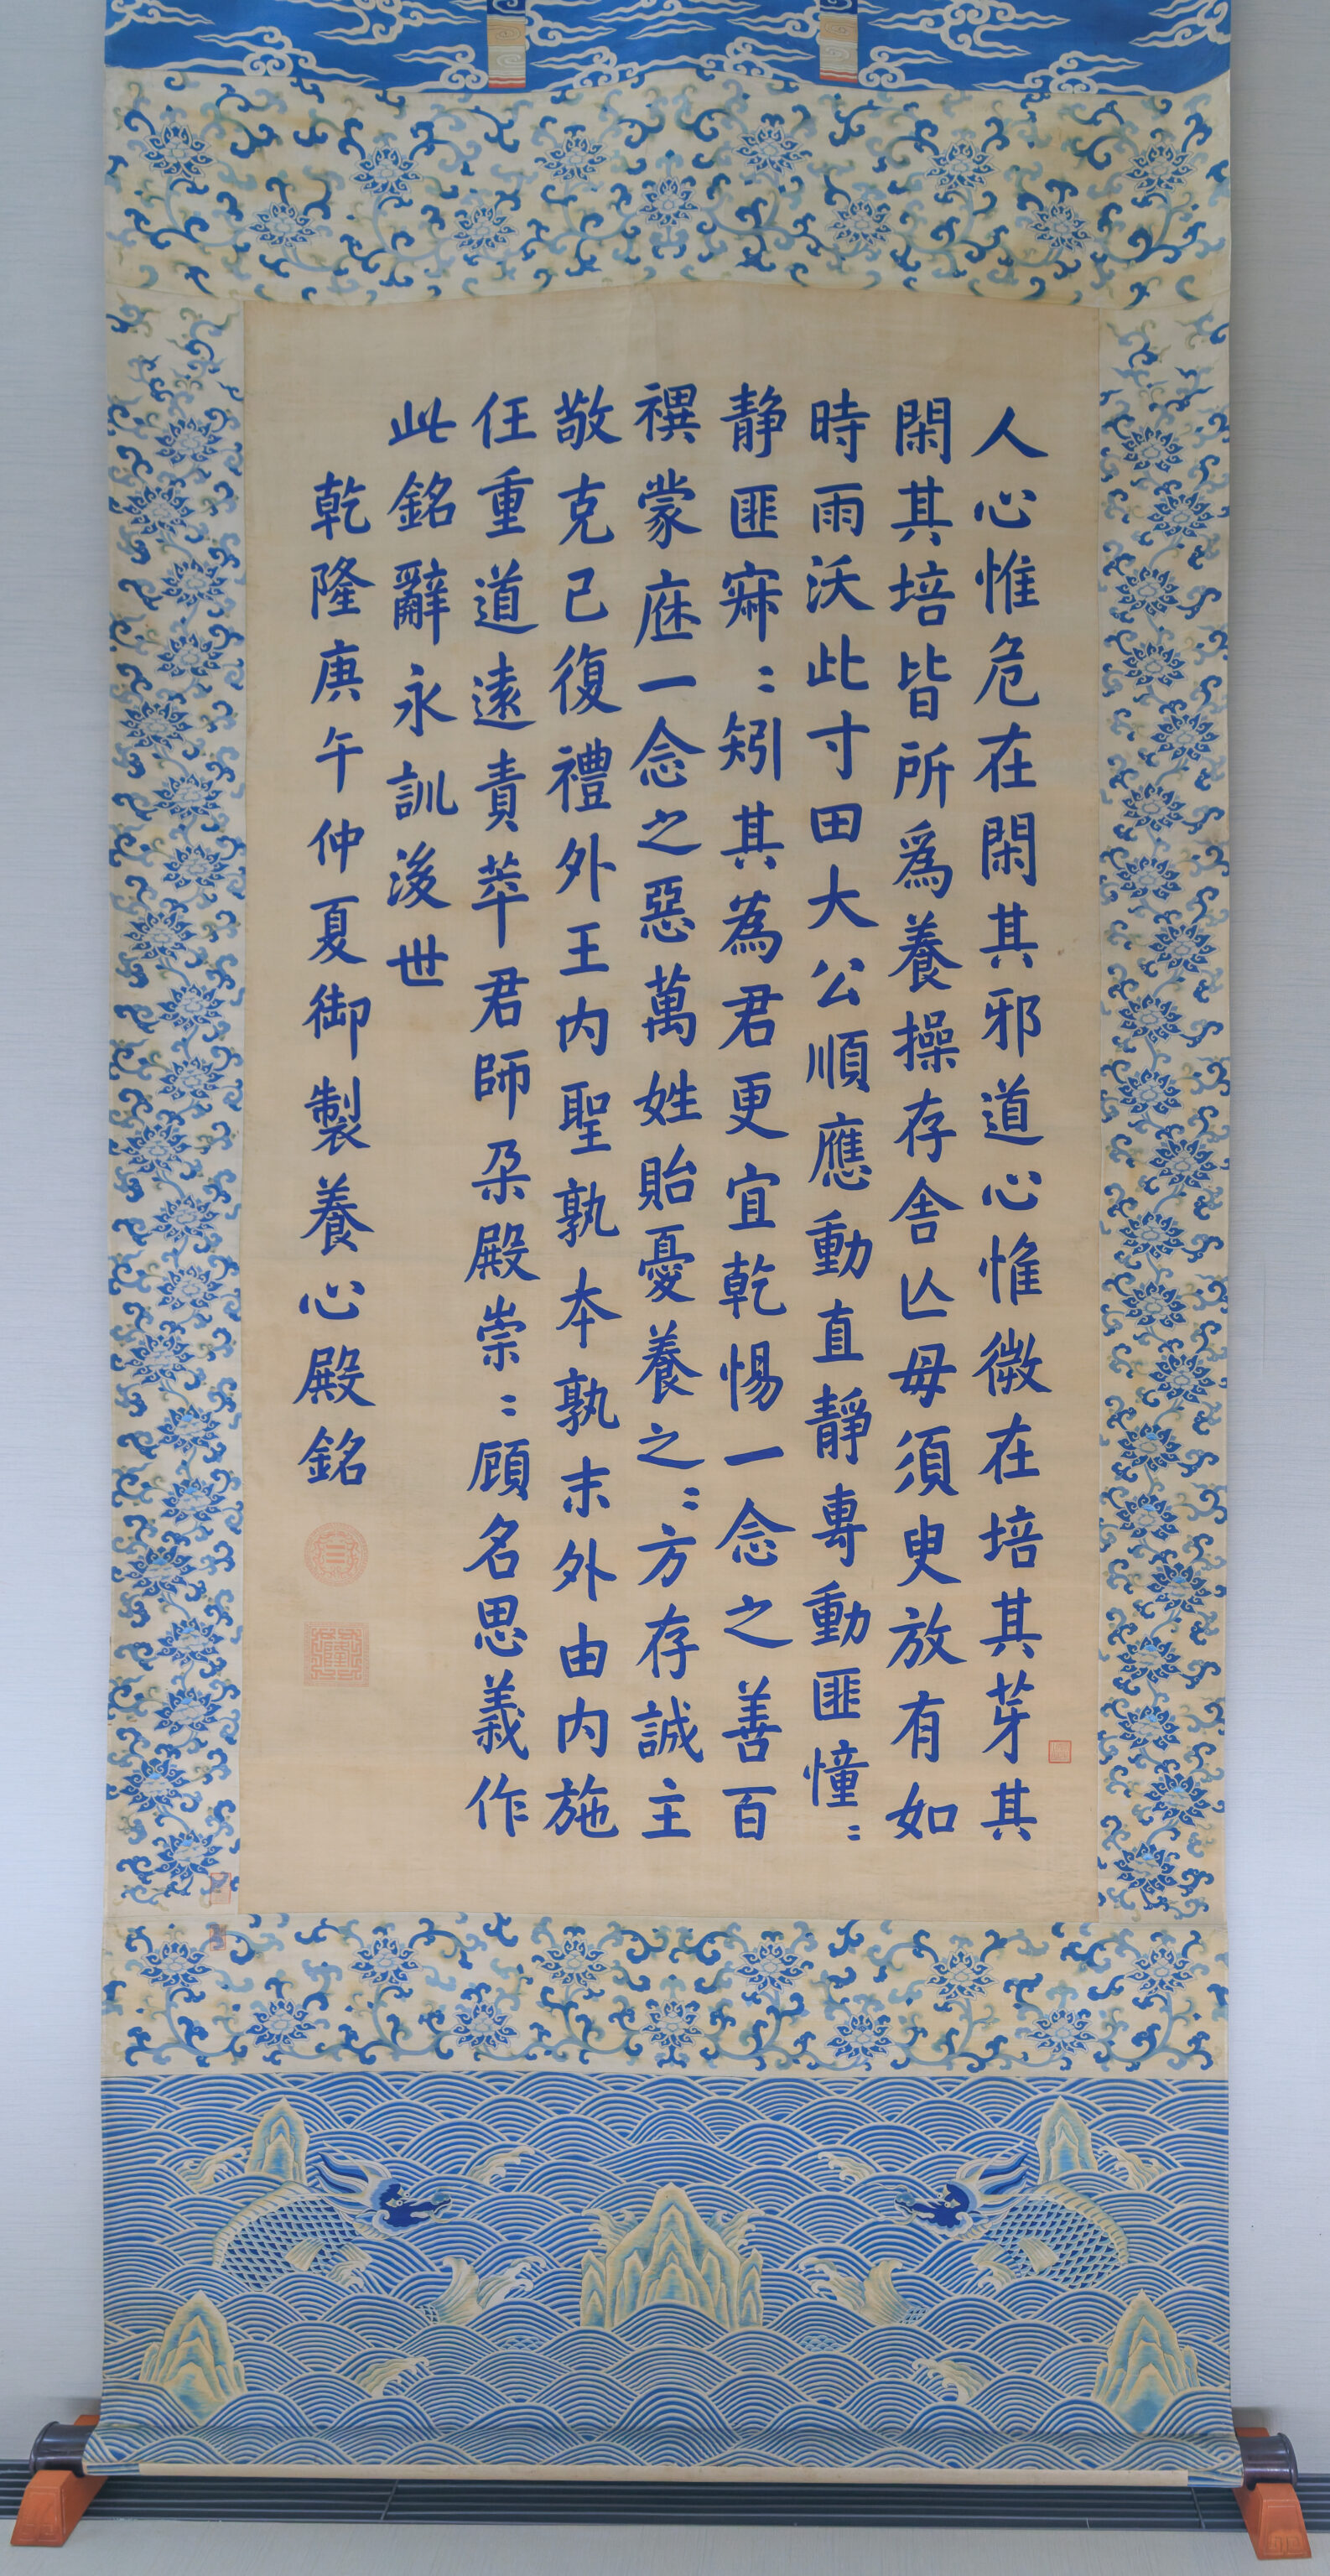 人心惟危在閑其邪道心惟微在培其芽其
閑其培皆所爲養操存舍亾毋須臾放有如
時雨沃此寸田大公順應動直靜專動匪憧〻
静匪寐〻矧其為君更宜乾惕一念之善百
禩蒙庥一念之惡萬姓貽憂養之〻方存誠主
敬克己復禮外王内聖孰本孰末外由内施
任重道遠責萃君師朶殿崇〻顧名思義作
此銘辭永訓後世
乾隆庚午仲夏御製養心殿銘